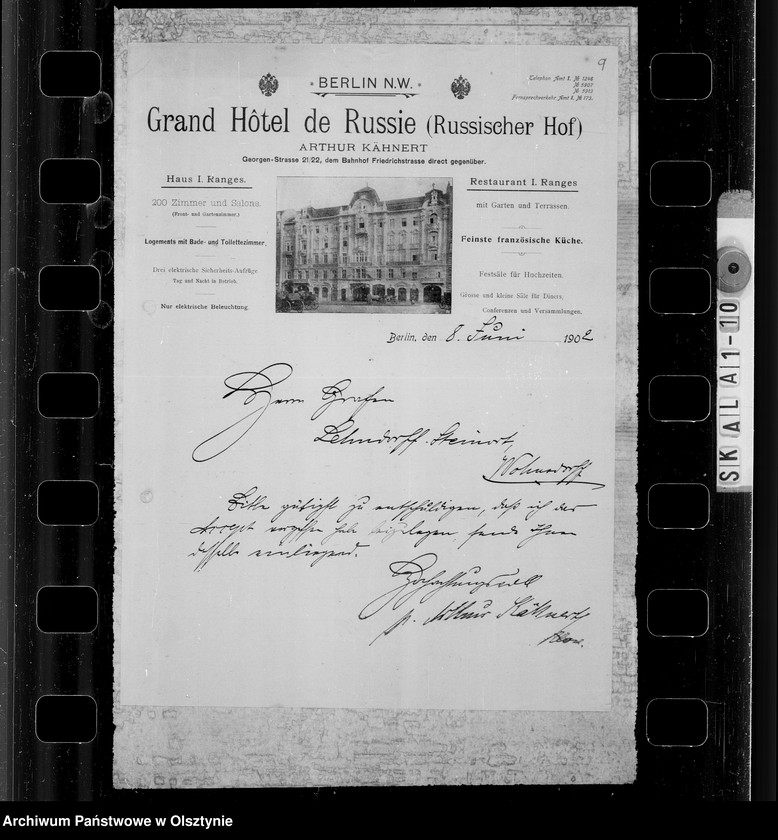 9
BERLIN N.W.
Telephon Amt I. № 1246
№ 5907
№ 5913
Fernsprechverkehr Amt I. № 173.
Grand Hôtel de Russie (Russischer Hof)
ARTHUR KÄHNERT
Georgen-Strasse 21/22, dem Bahnhof Friedrichstrasse direct gegenüber.
Haus I. Ranges.
200 Zimmer und Salons.
(Front- und Gartenzimmer.)
Logements mit Bade- und Toilettezimmer.
Drei elektrische Sicherheits-Aufzüge
Tag und Nacht in Betrieb.
Nur elektrische Beleuchtung.
Restaurant I. Ranges
mit Garten und Terrassen.
Feinste französische Küche.
Festsäle für Hochzeiten.
Grosse und kleine Säle für Diners,
Conferenzen und Versammlungen.
Berlin, den 8. Juni 1902
Herrn Grafen
Lehndorff-Steinort,
Wohnsdorff
Bitte gütigst zu entschuldigen, daß ich das
Accept vergessen habe beizulegen, sende Ihnen
dasselbe einliegend.
Hochachtungsvoll
p. Arthur Kähnert
SKALA 1-10
Archiwum Państwowe w Olsztynie